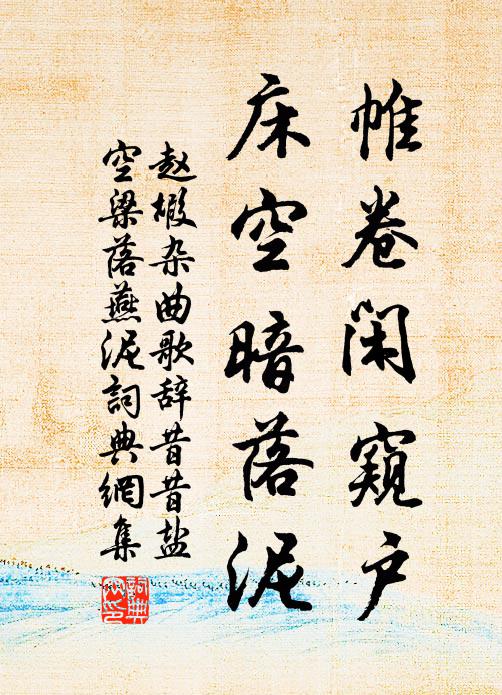 帷卷闲窥户
床空暗落泥
赵嘏杂曲歌辞昔昔盐
空梁落燕泥詞典網集